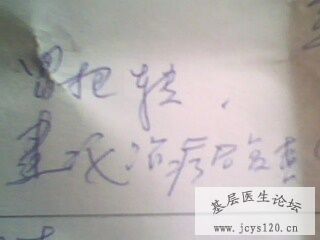 胃扭转.
建议治疗后复查
基层医生论坛
www.jcys120.cn